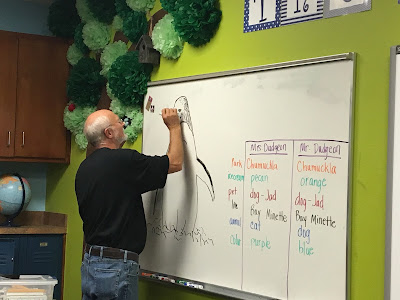 1 16
Mrs Dudgeon Mr. Dudgeon
Park Chumuckla Chumuckla
pecan orange
pet dog-Jad dog-Jad
Bay Minette Bay Minette
animal cat dog
color purple blue